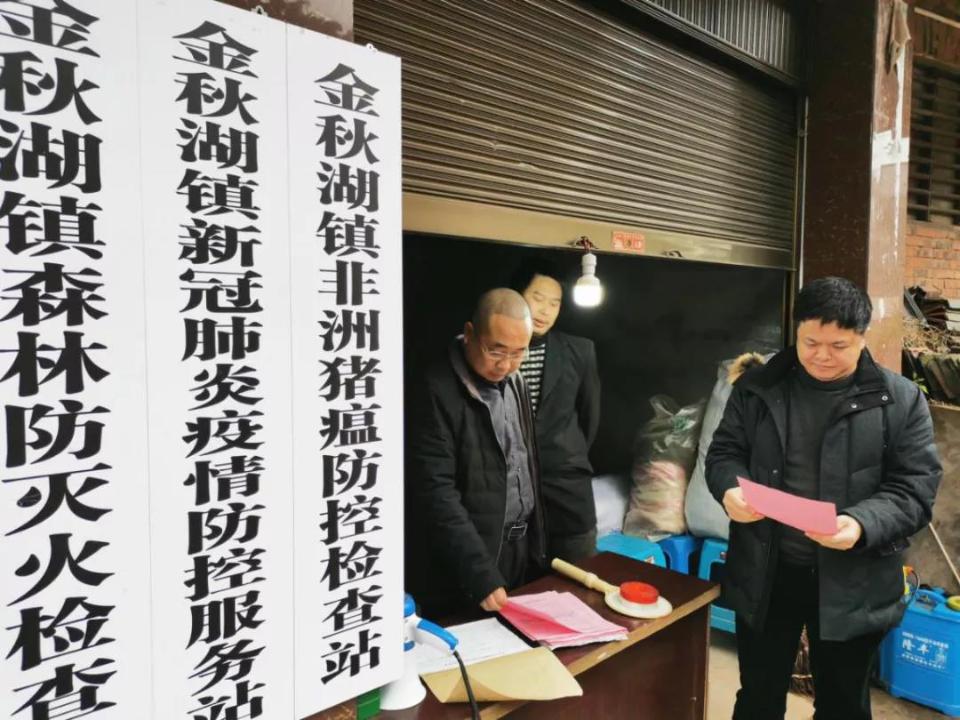 金秋湖镇森林防灭火检查
金秋湖镇新冠肺炎疫情防控服务站
金秋湖镇非洲猪瘟防控检查站
隆丰